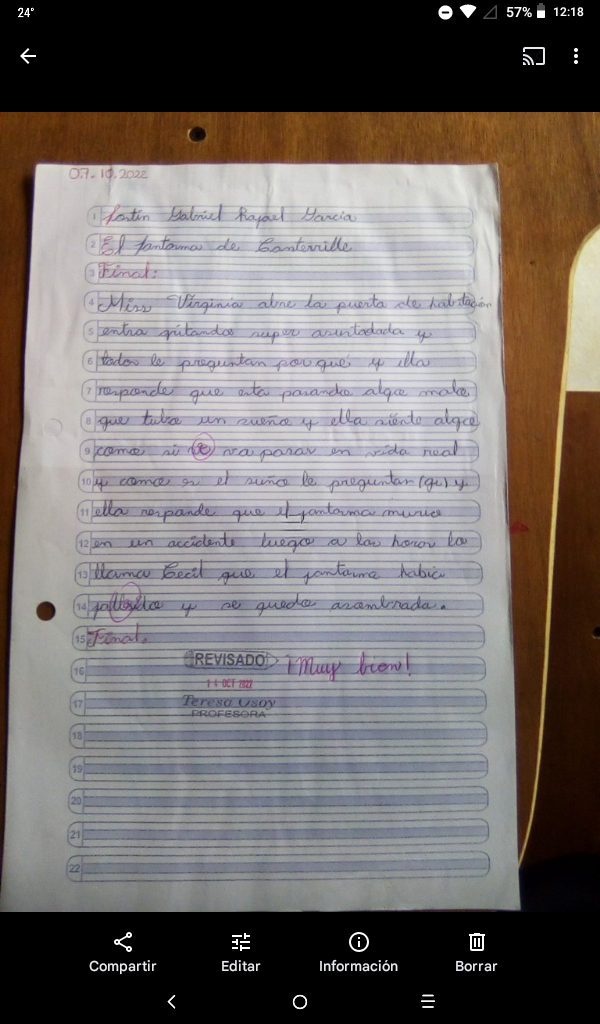 24°
57% 12:18
07.10.2022
1 Fortín Gabriel Rafael García
2 El fantasma de Canterville
3 Final:
4 Miss Virginia abre la puerta de habitación
5 entra gritando super asustadada y
6 todos le preguntan por qué y ella
7 responde que esta pasando algo malo
8 que tubo un sueño y ella siente algo
9 como si se va pasar en vida real
10 y como es el sueño le preguntan (qe) y
11 ella responde que el fantasma murio
12 en un accidente luego a las horas la
13 llama Cecil que el fantasma habia
14 fallecido y se quedo asombrada.
15 Final.
16 REVISADO ¡Muy bien!
14 OCT 2022
17 Teresa Usoy
PROFESORA
18
19
20
21
22
Compartir Editar Información Borrar